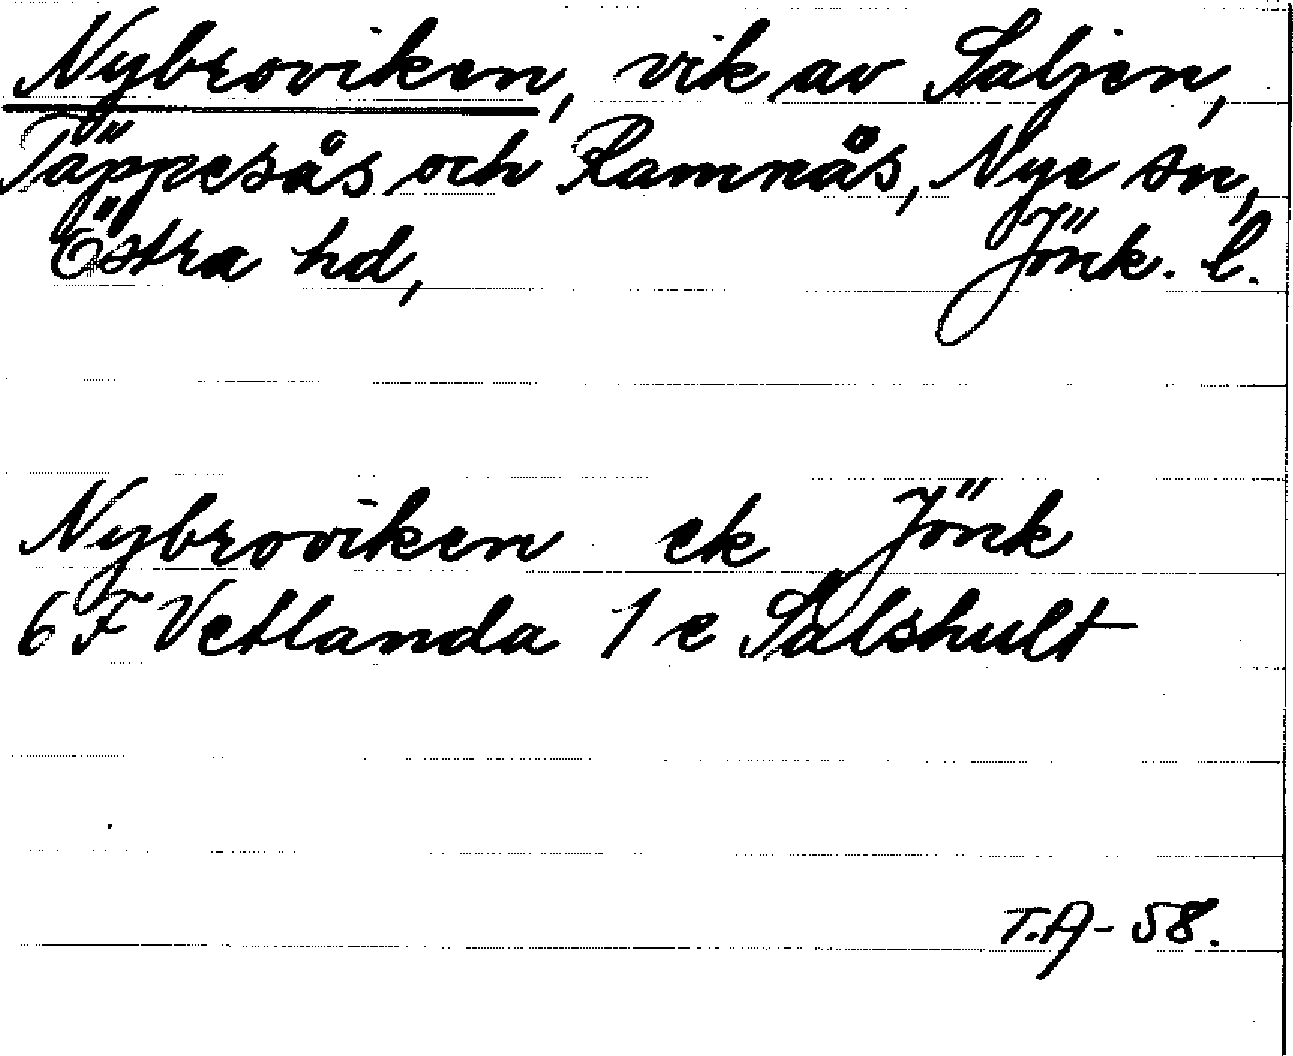 Nybroviken, vik av Saljen,
Täppesås och Ramnås, Nye sn,
Östra hd, Jönk. l.
Nybroviken ek Jönk
6 F Vetlanda 1 e Sälshult
T.A-58.